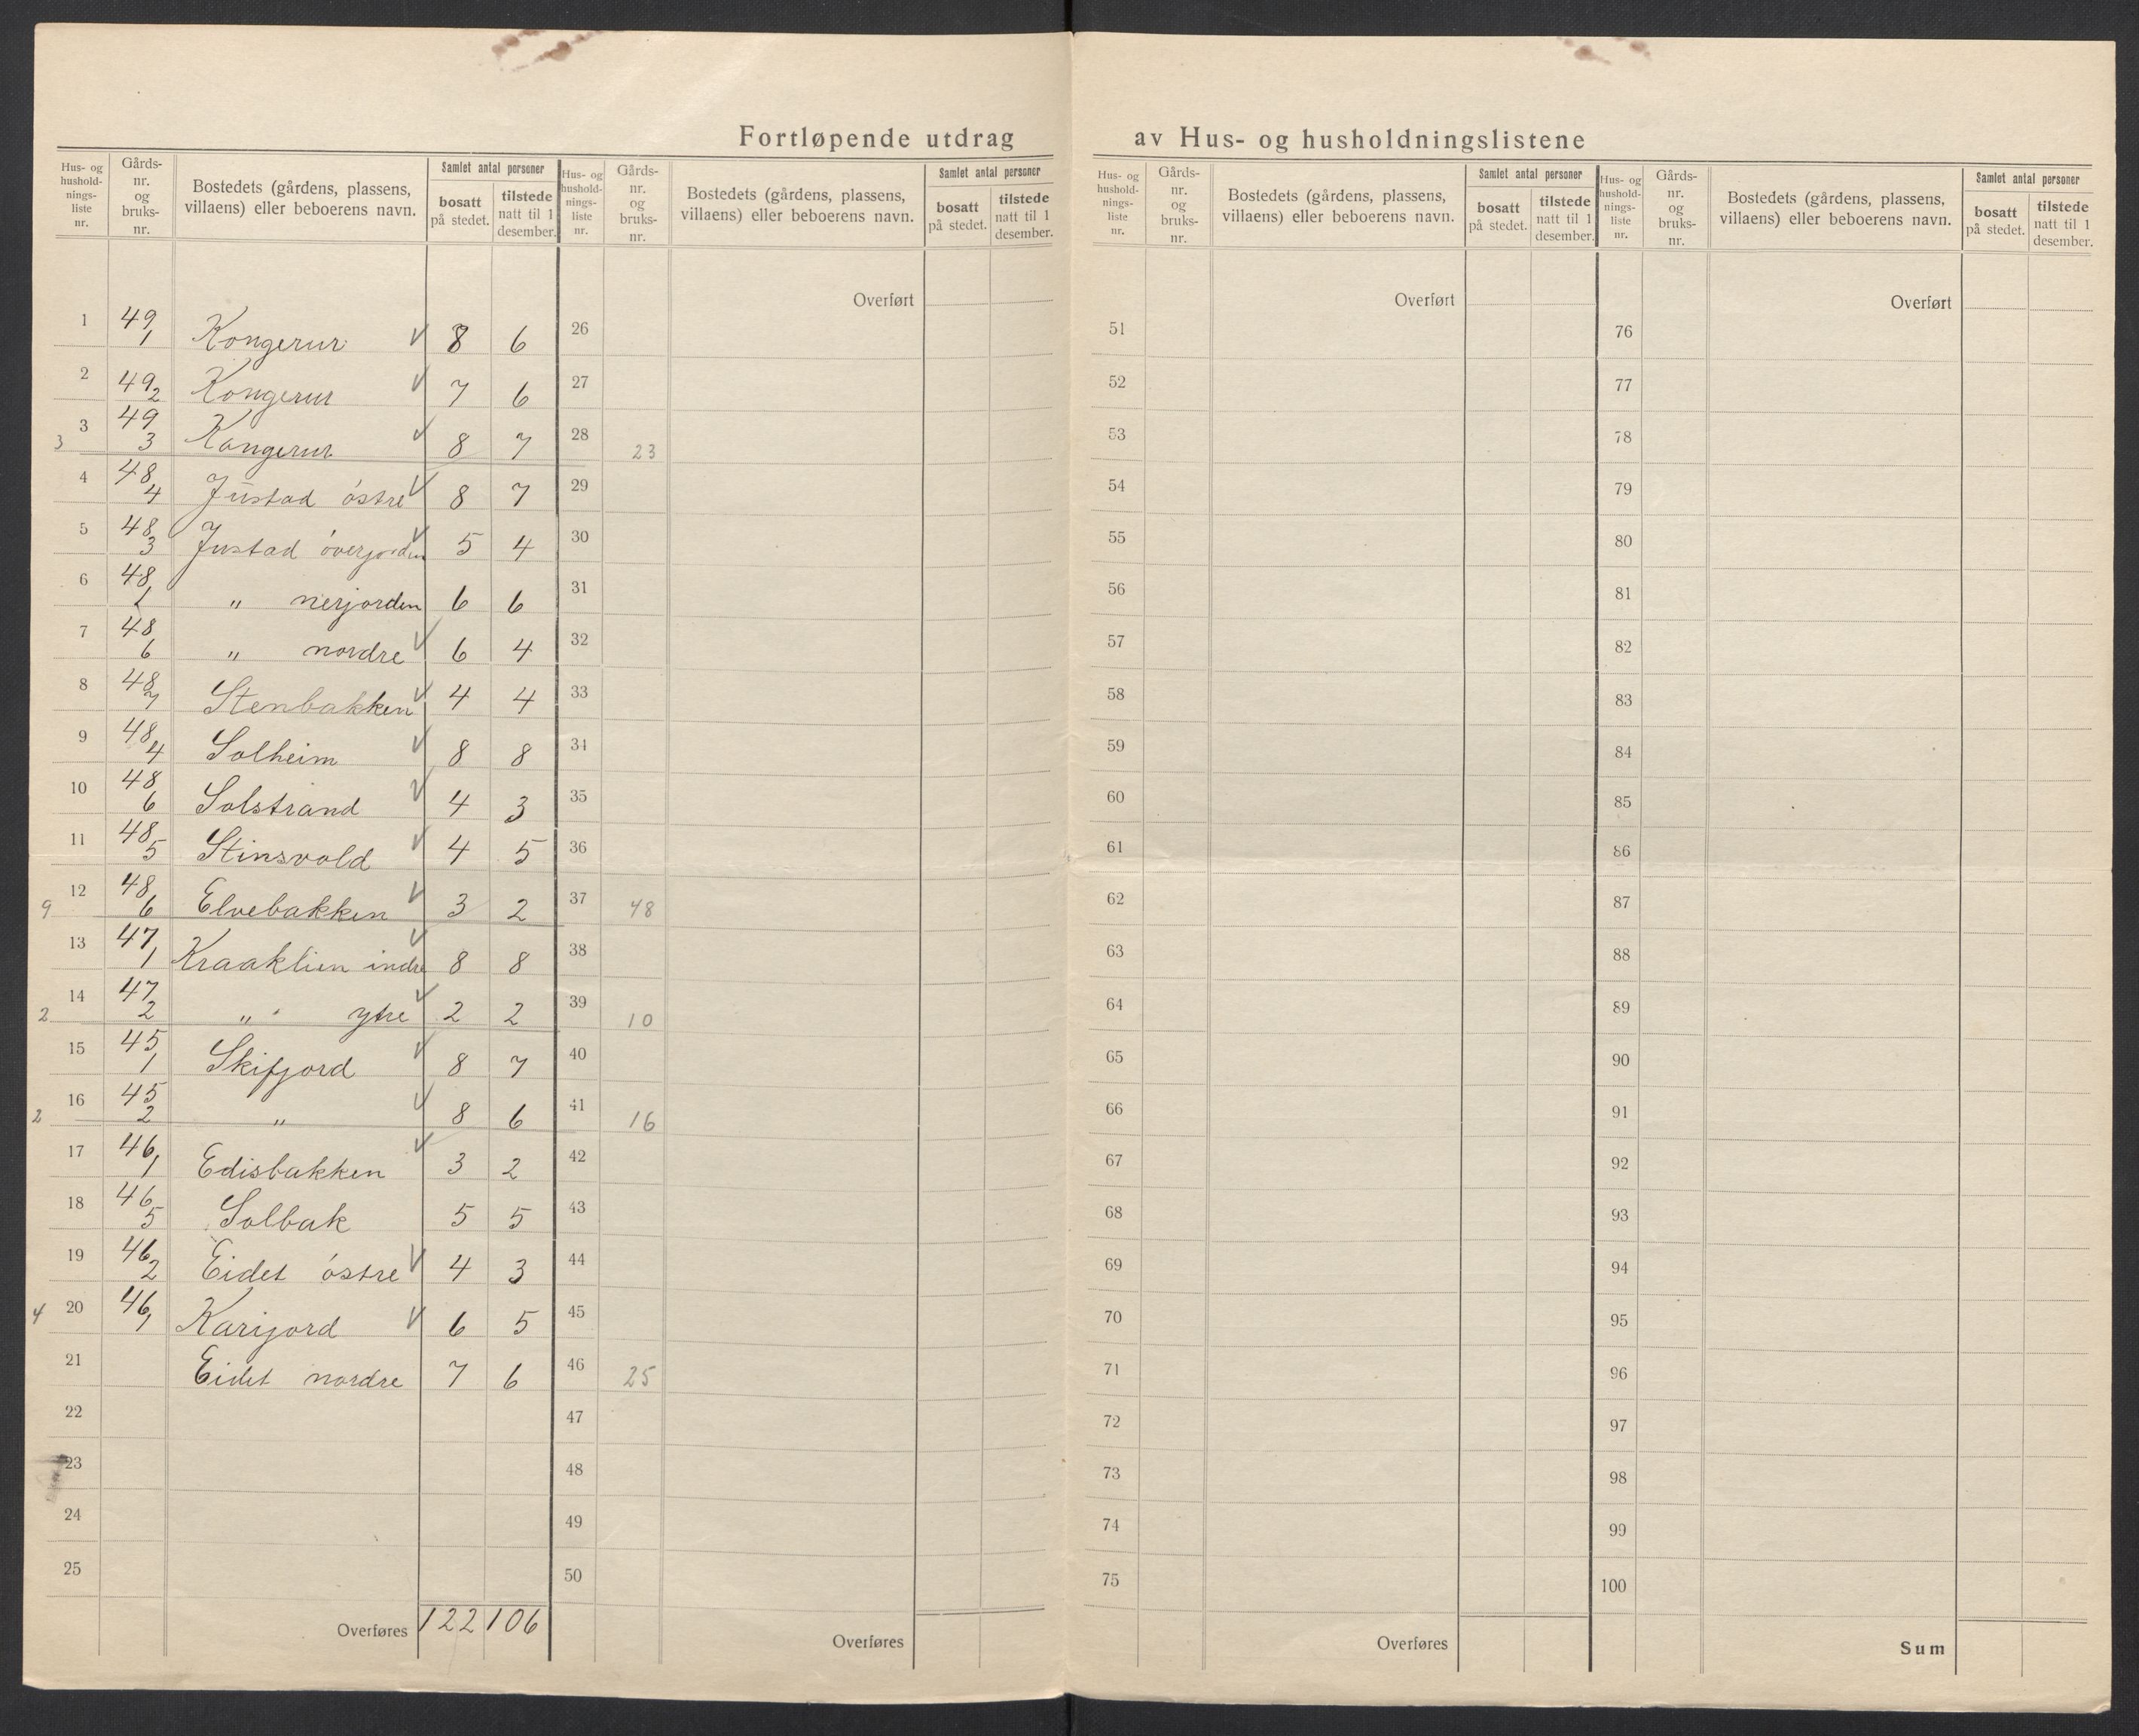 Fortløpende utdrag av Hus- og husholdningslistene
Hus- og hushold-nings-liste nr. Gårds-nr. og bruks-nr. Bostedets (gårdens, plassens, villaens) eller beboerens navn. Samlet antal personer bosatt på stedet. tilstede natt til 1 desember.
Hus- og hushold-nings-liste nr. Gårds-nr. og bruks-nr. Bostedets (gårdens, plassens, villaens) eller beboerens navn. Samlet antal personer bosatt på stedet. tilstede natt til 1 desember.
Hus- og hushold-nings-liste nr. Gårds-nr. og bruks-nr. Bostedets (gårdens, plassens, villaens) eller beboerens navn. Samlet antal personer bosatt på stedet. tilstede natt til 1 desember.
Hus- og hushold-nings-liste nr. Gårds-nr. og bruks-nr. Bostedets (gårdens, plassens, villaens) eller beboerens navn. Samlet antal personer bosatt på stedet. tilstede natt til 1 desember.
Overført Overført Overført
1 49/1 Kongerur 8 6 26 51 76
2 49/2 Kongerur 7 6 27 52 77
3 3 49/3 Kongerur 8 7 28 23 53 78
4 48/4 Justad østre 8 7 29 54 79
5 48/3 Justad överjorden 5 4 30 55 80
6 48/1 " nerjorden 6 6 31 56 81
7 48/6 " nordre 6 4 32 57 82
8 48/7 Stenbakken 4 4 33 58 83
9 48/4 Solheim 8 8 34 59 84
10 48/6 Solstrand 4 3 35 60 85
11 48/5 Stinsvold 4 5 36 61 86
9 12 48/6 Elvebakken 3 2 37 48 62 87
13 47/1 Kraaklien indre 8 8 38 63 88
2 14 47/2 " ytre 2 2 39 10 64 89
15 45/1 Skifjord 8 7 40 65 90
2 16 45/2 " 8 6 41 16 66 91
17 46/1 Edisbakken 3 2 42 67 92
18 46/5 Solbak 5 5 43 68 93
19 46/2 Eidet østre 4 3 44 69 94
4 20 46/1 Karijord 6 5 45 70 95
21 Eidet nordre 7 6 46 25 71 96
22 47 72 97
23 48 73 98
24 49 74 99
25 50 75 100
Overføres 122 106 Overføres Overføres Sum